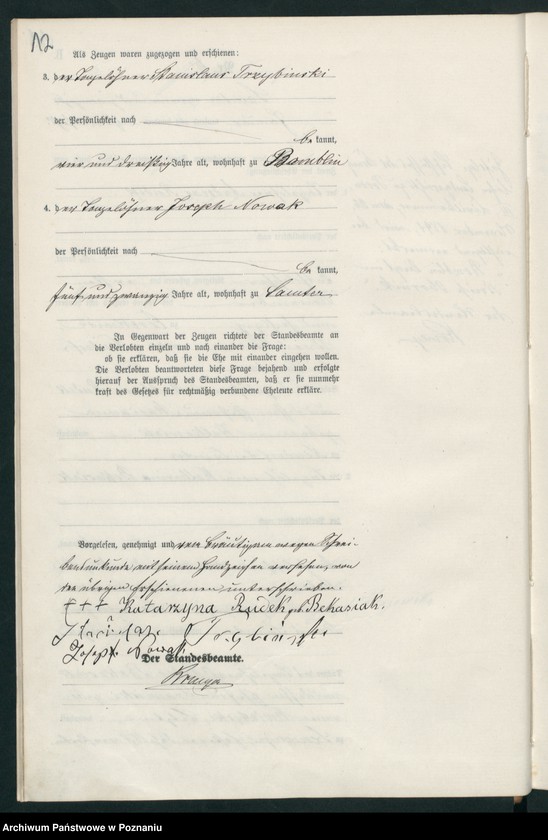 12
Als Zeugen waren zugezogen und erschienen:
3. der Tagelöhner Stanislaus Trzybinski
der Persönlichkeit nach
be kannt,
vier und dreißig Jahre alt, wohnhaft zu Bomblin
4. der Tagelöhner Joseph Nowak
der Persönlichkeit nach
be kannt,
fünf und zwanzig Jahre alt, wohnhaft zu Samter
In Gegenwart der Zeugen richtete der Standesbeamte an
die Verlobten einzeln und nach einander die Frage:
ob sie erklären, daß sie die Ehe mit einander eingehen wollen.
Die Verlobten beantworteten diese Frage bejahend und erfolgte
hierauf der Ausspruch des Standesbeamten, daß er sie nunmehr
kraft des Gesetzes für rechtmäßig verbundene Eheleute erkläre.
Vorgelesen, genehmigt und vom Bräutigam wegen Schrei-
bensunkunde mit seinem Handzeichen versehen, von
den übrigen Erschienenen unterschrieben.
+++ Katarzyna Rudek geb Bekasiak.
Joseph Nowak
Der Standesbeamte.
Archiwum Państwowe w Poznaniu